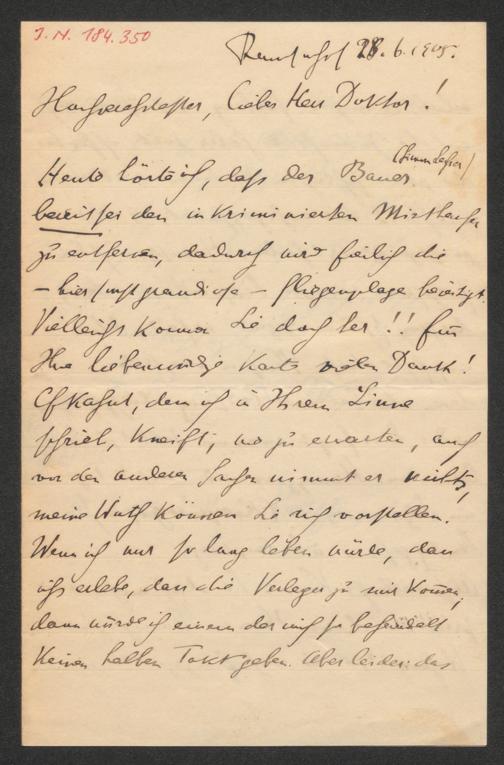 I.N. 184.350
28.6.1905.
Hochverehrtester, lieber Herr Doktor!
Heute hörte ich, dass der Bauer
bereit sei den inkriminierten Misthaufen
zu entfernen, dadurch wird freilich die
– hier sonst grandiose – Fliegenplage beseitigt.
Vielleicht kommen Sie doch her!! Für
Ihre liebenswürdige Karte vielen Dank!
Cf Kahnt, dem ich in Ihrem Sinne
schrieb, kneift, wie zu erwarten, auch
von den anderen Sachen nimmt er nichts,
meine Wuth können Sie sich vorstellen.
Wenn ich nur so lang leben würde, dass
ichs erlebe, dass die Verleger zu mir kom̅en,
dann würde ich einem der mich so behandelt
keinen halben Takt geben. Aber leider: das